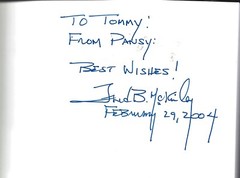 TO TOMMY:
FROM PANSY:
BEST WISHES!
Fred B. McKinley
FEBRUARY 29, 2004